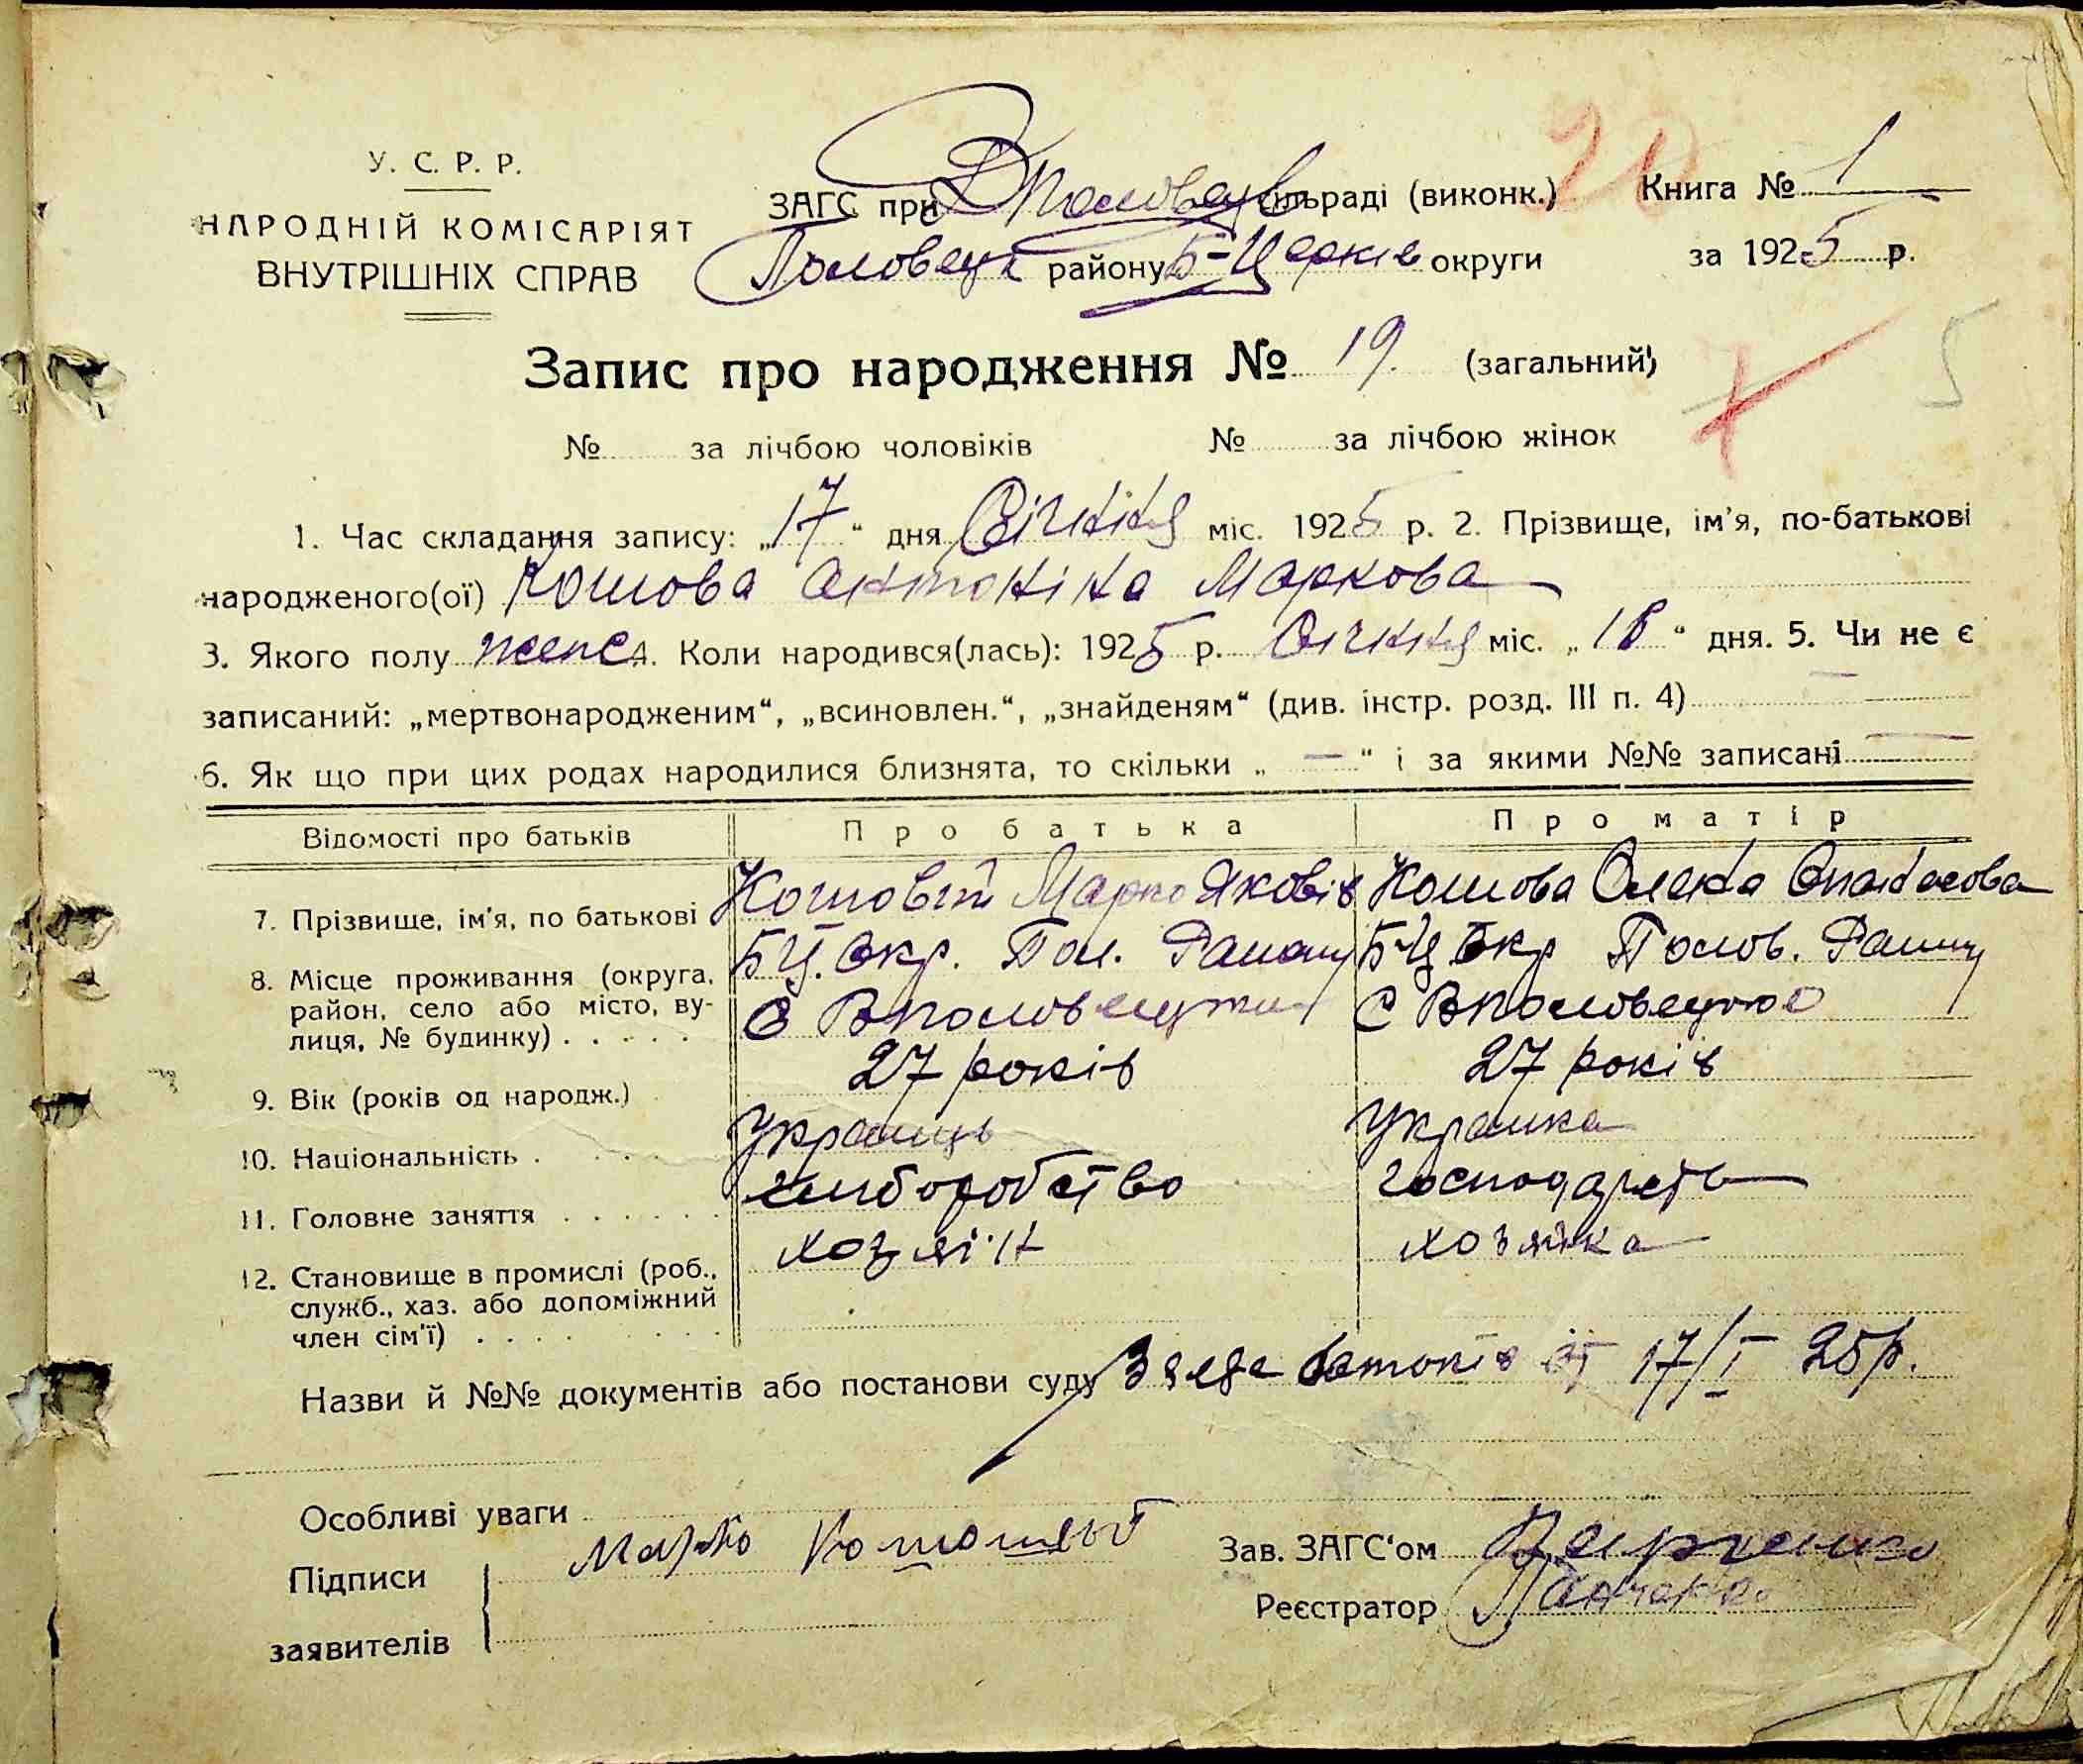 У. С. Р. Р.
НАРОДНІЙ КОМІСАРІЯТ
ВНУТРІШНІХ СПРАВ
ЗАГС при Вполовецьк сільраді (виконк.)
Половецьк району Б-Церків округи
20
Книга № 1
за 1925 р.
Запис про народження № 19. (загальний)
5
№ за лічбою чоловіків № за лічбою жінок
1. Час складання запису: „17“ дня Січня міс. 1925 р. 2. Прізвище, ім'я, по-батькові
народженого(ої) Кошова Антоніна Маркова
3. Якого полу женс. Коли народився(лась): 1925 р. Січня міс. „16“ дня. 5. Чи не є
записаний: „мертвонародженим“, „всиновлен.“, „знайденям“ (див. інстр. розд. III п. 4) —
6. Як що при цих родах народилися близнята, то скільки „ — “ і за якими №№ записані —
Відомості про батьків Про батька Про матір
7. Прізвище, ім'я, по батькові Кошовий Марко Яковів Кошова Олена Опанасова
8. Місце проживання (округа, район, село або місто, вулиця, № будинку) . . . . . БЦ. Окр. Пол. Району БЦ Окр Полов. Району
С Вполовецьке С Вполовецьке
9. Вік (років од народж.) 27 років 27 років
10. Національність . . . . Українць Українка
11. Головне заняття . . . . . . хліборобство господарство
12. Становище в промислі (роб., служб., хаз. або допоміжний член сім'ї) . . . . хозяїн хозяйка
Назви й №№ документів або постанови суду Заява батьків від 17/I 25 р.
Особливі уваги
Підписи заявителів Марко Кошовый
Зав. ЗАГС'ом
Реєстратор Панченко